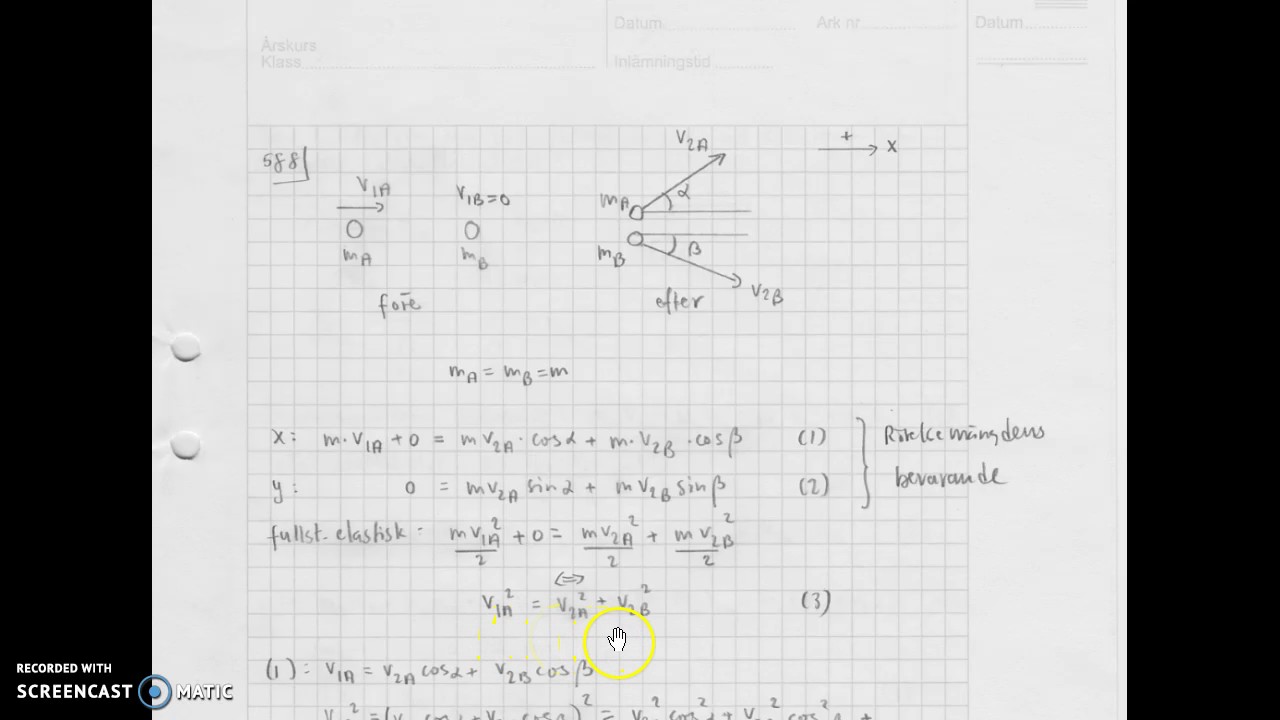 Datum
Ark nr
Datum
Årskurs
Klass
Inlämningstid
588
V1A
V1B=0
mA
mB
före
V2A
mA
α
mB
β
V2B
efter
+
x
mA = mB = m
x: m·V1A + 0 = mV2A·cosα + m·V2B·cosβ (1)
y: 0 = mV2A sinα + mV2B sinβ (2)
Rörelsemängdens
bevarande
fullst. elastisk: mV1A²/2 + 0 = mV2A²/2 + mV2B²/2
⇔
V1A² = V2A² + V2B² (3)
(1): V1A = V2A cosα + V2B cosβ
RECORDED WITH
SCREENCAST MATIC